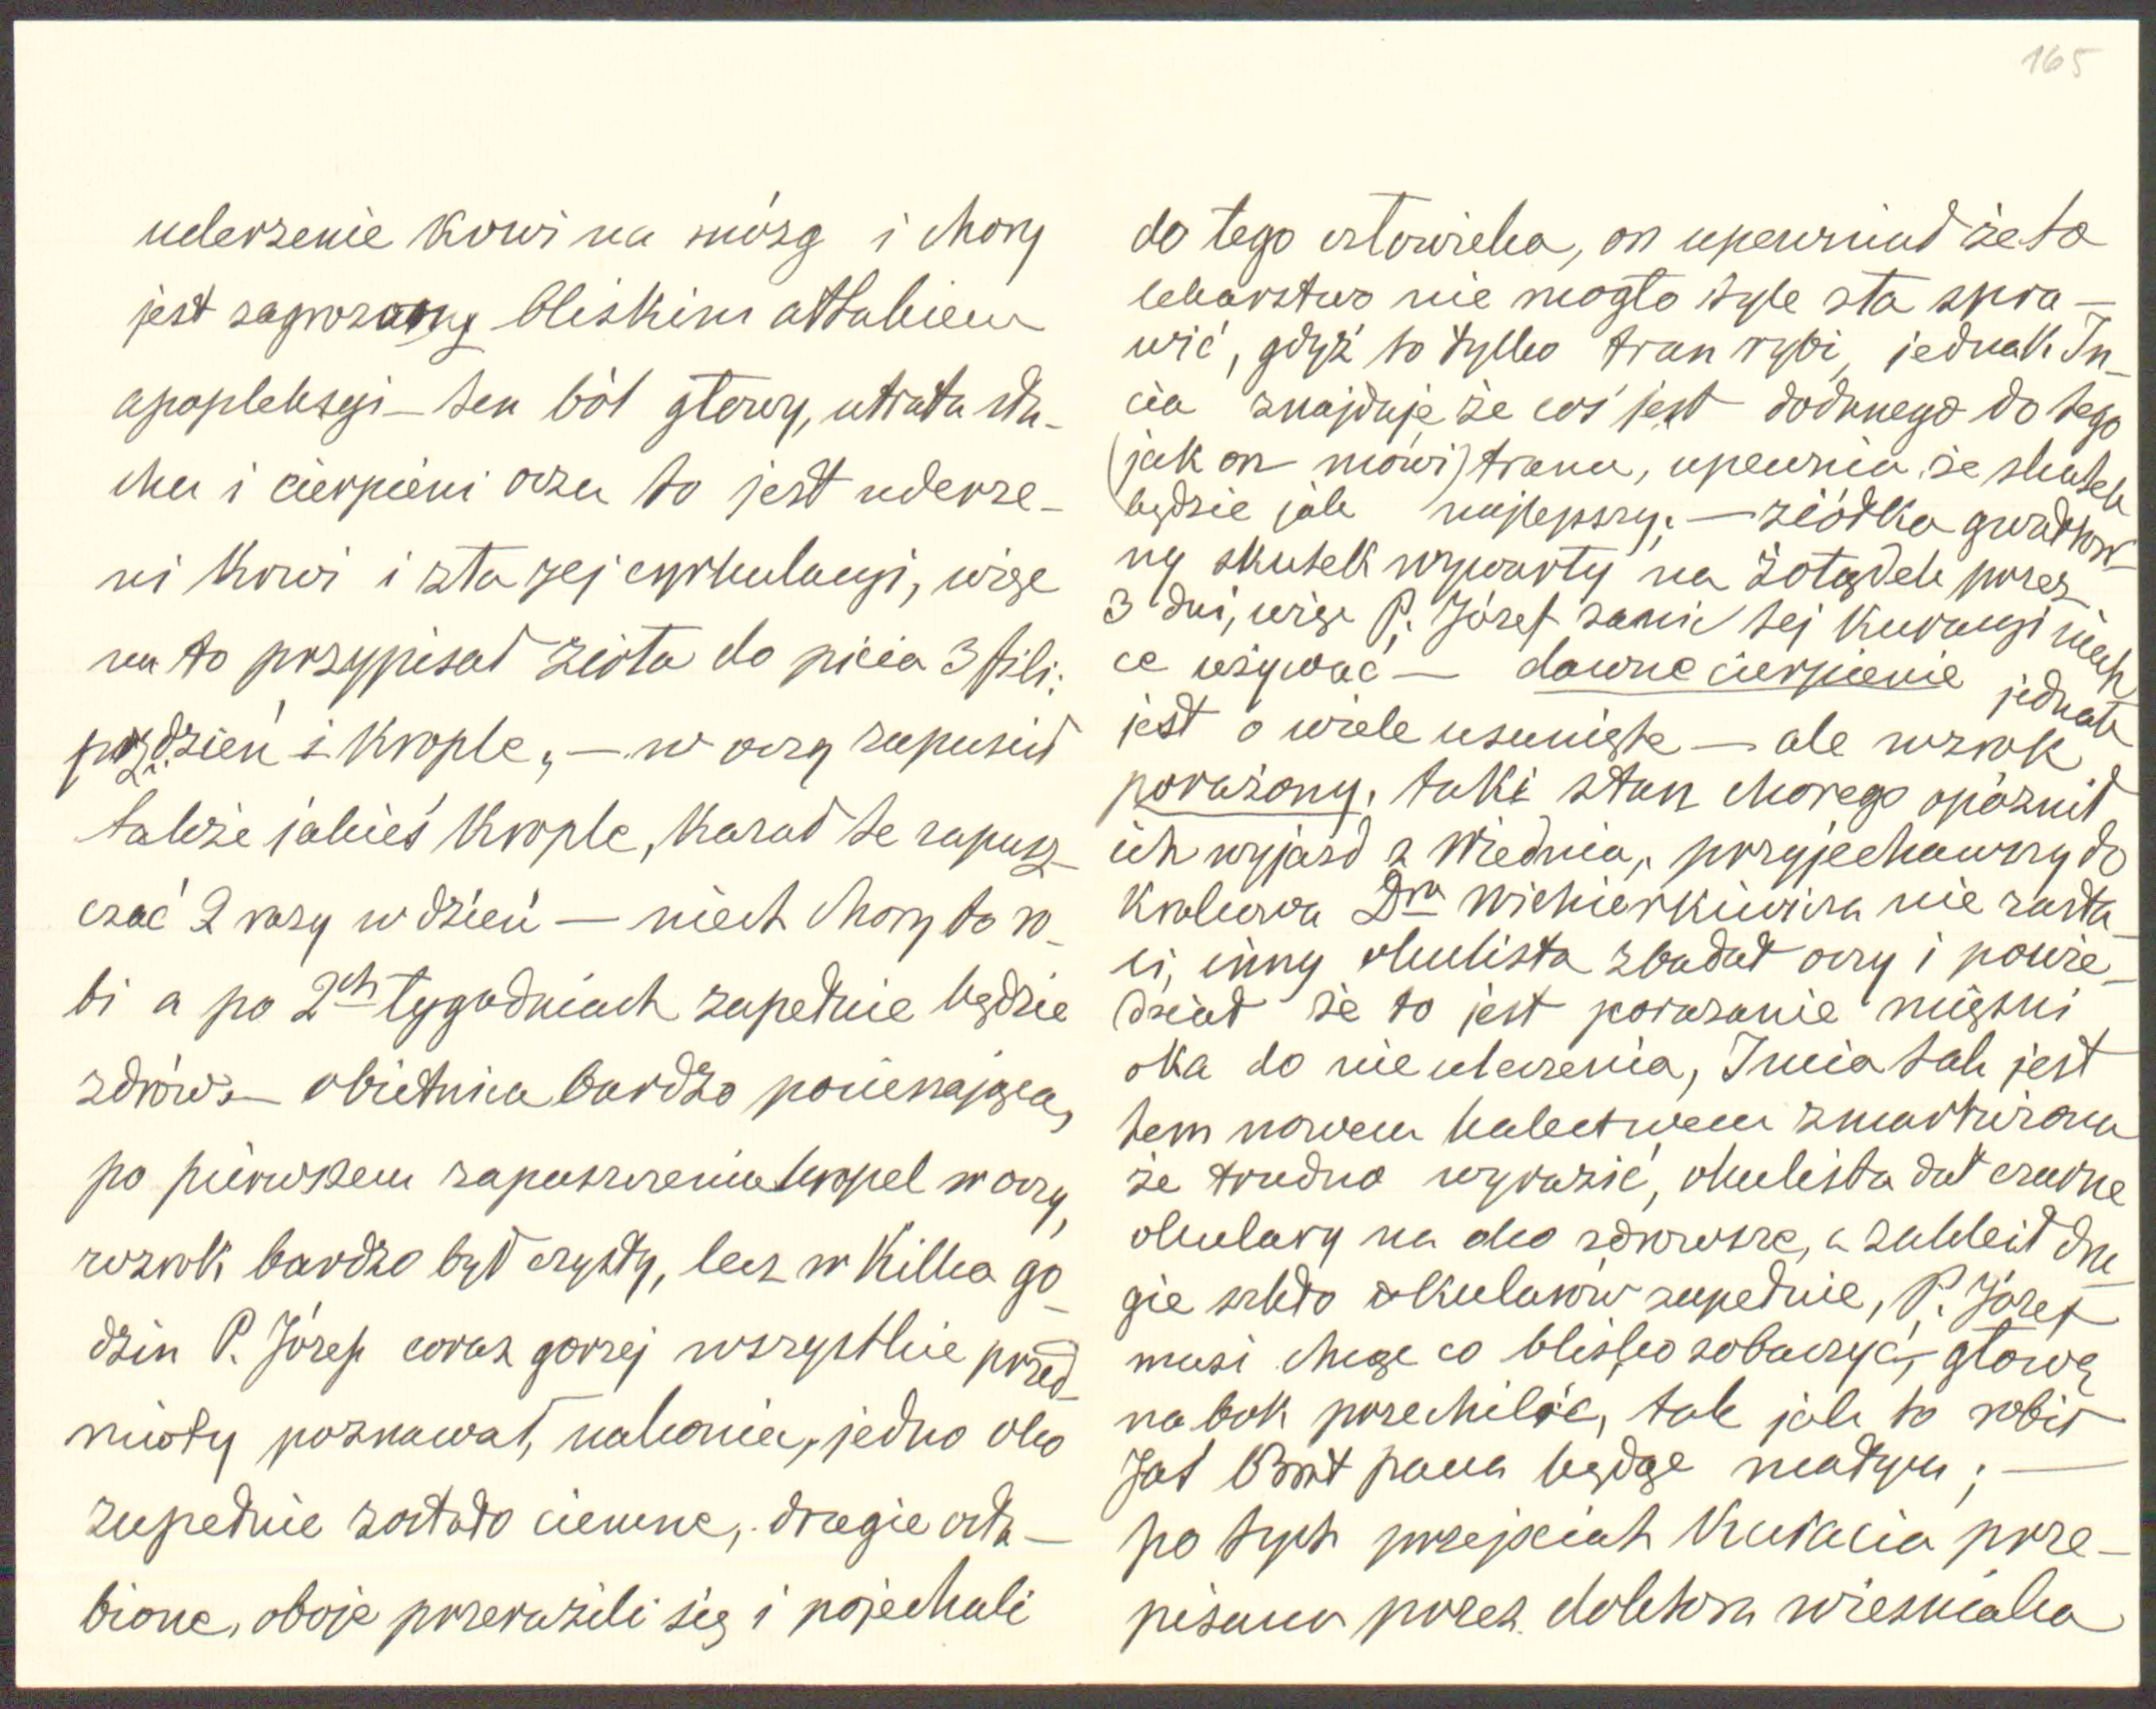 165
uderzenie krwi na mózg i chory
jest zagrozony bliskim attakiem
apopleksyi — ten ból głowy, utrata słu-
chu i cierpieni oczu to jest uderze-
ni krwi i zła jej cyrkulacyi, więc
na to przypisał zioła do picia 3 fili:
dzień i krople, — w oczy zapuścił
także jakieś krople, kazał te zapusz-
czać 2 razy w dzień — niech chory to ro-
bi a po 2ch tygodniach zupełnie będzie
zdrów — obietnica bardzo pocieszająca,
po pierwszem zapuszczeniu kropel w oczy,
wzrok bardzo był czysty, lecz w kilka go-
dzin P. Józef coraz gorzej wszystkie przed-
mioty poznawał, nakoniec, jedno oko
zupełnie zostało ciemne, drugie osła-
bione, oboje przerazili się i pojechali
do tego człowieka, on upewniał że to
lekarstwo nie mogło tyle zła spra-
wić, gdyż to tylko tran rybi, jednak In-
cia znajduje że coś jest dodanego do tego
(jak on mówi) tranu, upewnia że skutek
będzie jak najlepszy; — ziółka gwałtow-
ny skutek wywarły na żołądek przez
3 dni, więc P. Józef zanic tej kuracyi niech-
ce używać — dawne cierpienie jednak
jest o wiele usunięte — ale wzrok
porażony, taki stan chorego opóźnił
ich wyjazd z Wiednia, przyjechawszy do
Krakowa Dra Wicherkiewicza nie zasta-
li, inny okulista zbadał oczy i powie-
dział że to jest porazanie mięśni
oka do nie uleczenia, Incia tak jest
tem nowem kalectwem zmartwiona
że trudno wyrazić, okulista dał czarne
okulary na oko zdrowsze, a zakleił dru-
gie szkło okularów zupełnie, P. Józef
musi chcąc co blisko zobaczyć, głowę
na bok przechilić, tak jak to robił
Jaś Brat pana będąc małym; —
po tych przejściach kuracia prze-
pisana przez doktora wieśniaka